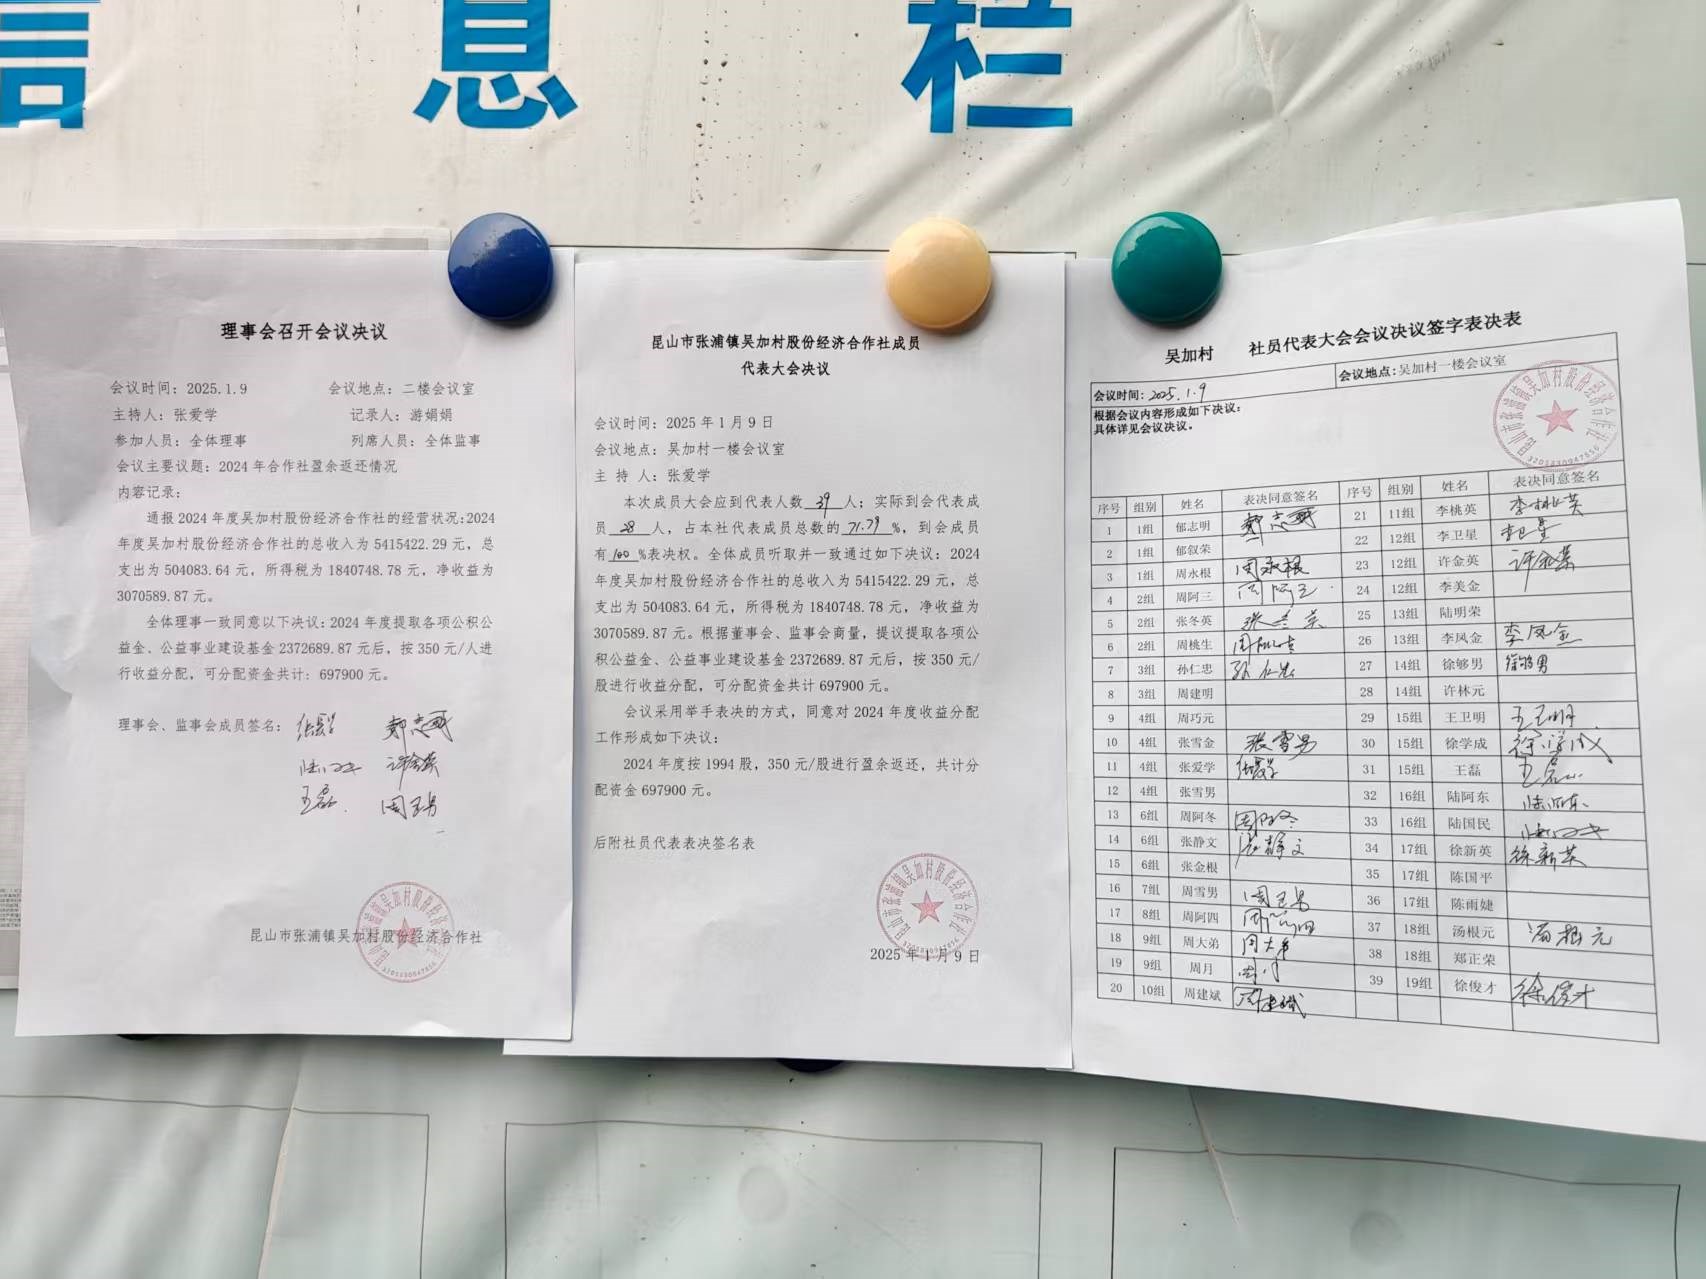 信息栏
理事会召开会议决议
会议时间：2025.1.9 会议地点：二楼会议室
主持人：张爱学 记录人：游娟娟
参加人员：全体理事 列席人员：全体监事
会议主要议题：2024 年合作社盈余返还情况
内容记录：
通报 2024 年度吴加村股份经济合作社的经营状况:2024
年度吴加村股份经济合作社的总收入为 5415422.29 元，总
支出为 504083.64 元，所得税为 1840748.78 元，净收益为
3070589.87 元。
全体理事一致同意以下决议：2024 年度提取各项公积公
益金、公益事业建设基金 2372689.87 元后，按 350 元/人进
行收益分配，可分配资金共计：697900 元。
理事会、监事会成员签名：张爱学 郁志明
陆国民 许金英
王磊 周雪男
昆山市张浦镇吴加村股份经济合作社
昆山市张浦镇吴加村股份经济合作社成员
代表大会决议
会议时间：2025 年 1 月 9 日
会议地点：吴加村一楼会议室
主 持 人：张爱学
本次成员大会应到代表人数 39 人；实际到会代表成
员 28 人，占本社代表成员总数的 71.79 %，到会成员
有 100 %表决权。全体成员听取并一致通过如下决议：2024
年度吴加村股份经济合作社的总收入为 5415422.29 元，总
支出为 504083.64 元，所得税为 1840748.78 元，净收益为
3070589.87 元。根据董事会、监事会商量，提议提取各项公
积公益金、公益事业建设基金 2372689.87 元后，按 350 元/
股进行收益分配，可分配资金共计 697900 元。
会议采用举手表决的方式，同意对 2024 年度收益分配
工作形成如下决议：
2024 年度按 1994 股，350 元/股进行盈余返还，共计分
配资金 697900 元。
后附社员代表表决签名表
昆山市张浦镇吴加村股份经济合作社
2025 年 1 月 9 日
吴加村 社员代表大会会议决议签字表决表
会议时间：2025.1.9 会议地点：吴加村一楼会议室
根据会议内容形成如下决议：
具体详见会议决议。
昆山市张浦镇吴加村股份经济合作社
序号 组别 姓名 表决同意签名 序号 组别 姓名 表决同意签名
1 1组 郁志明 郁志明 21 11组 李桃英 李桃英
2 1组 郁叙荣 22 12组 李卫星 李卫星
3 1组 周永根 周永根 23 12组 许金英 许金英
4 2组 周阿三 周阿三 24 12组 李美金
5 2组 张冬英 张冬英 25 13组 陆明荣
6 2组 周桃生 周桃生 26 13组 李凤金 李凤金
7 3组 孙仁忠 孙仁忠 27 14组 徐够男 徐够男
8 3组 周建明 28 14组 许林元
9 4组 周巧元 29 15组 王卫明 王卫明
10 4组 张雪金 张雪男 30 15组 徐学成 徐学成
11 4组 张爱学 张爱学 31 15组 王磊 王磊
12 4组 张雪男 32 16组 陆阿东 陆阿东
13 6组 周阿冬 周阿冬 33 16组 陆国民 陆国民
14 6组 张静文 张静文 34 17组 徐新英 徐新英
15 6组 张金根 35 17组 陈国平
16 7组 周雪男 周雪男 36 17组 陈雨婕
17 8组 周阿四 周阿四 37 18组 汤根元 汤根元
18 9组 周大弟 周大弟 38 18组 郑正荣
19 9组 周月 周月 39 19组 徐俊才 徐俊才
20 10组 周建斌 周建斌